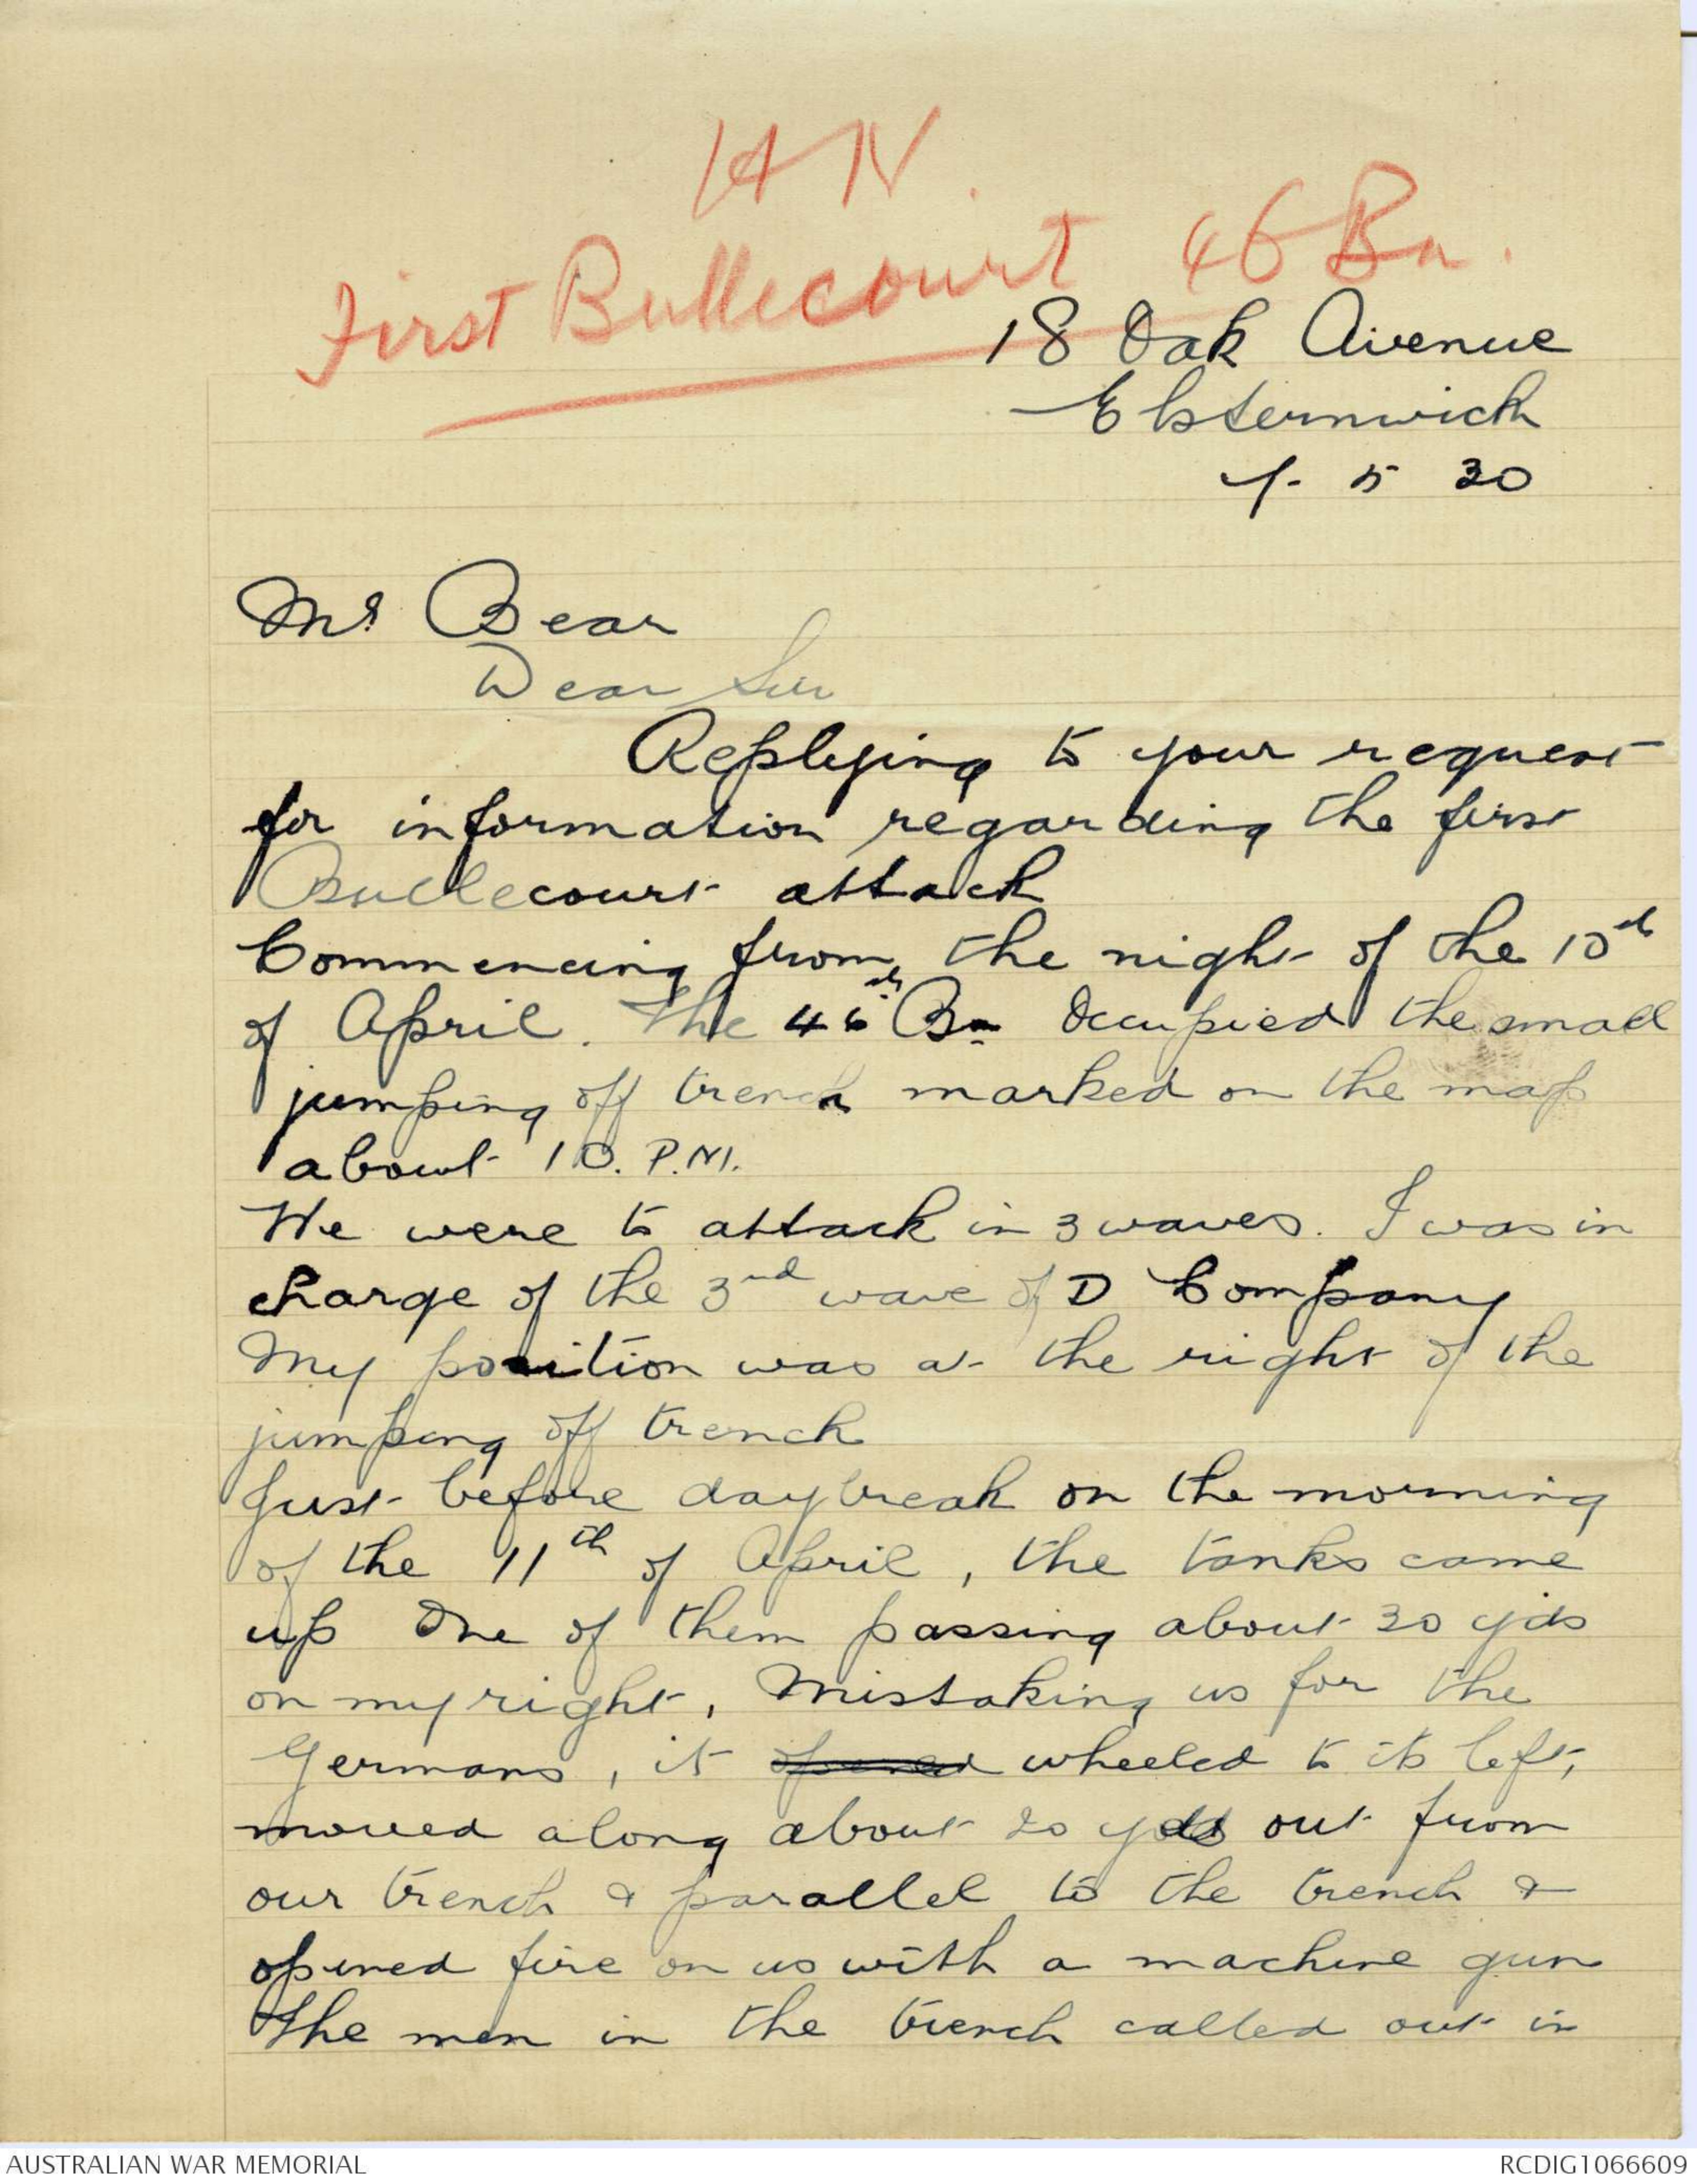 First Bullecourt 46 Bn.
18 Oak Avenue
Elsternwick
5 30
Mr Bear
Dear Sir
Replying to your request
for information regarding the first
Bullecourt attack
Commencing from the night of the 10th
of April. The 46th Bn Occupied the small
jumping off trench marked on the map
about 10. P.M.
We were to attack in 3 waves. I was in
charge of the 3rd wave of D Company
My position was at the right of the
jumping off trench
Just before daybreak on the morning
of the 11th of April, the tanks came
up One of them passing about 30 yds
on my right, Mistaking us for the
Germans, it opened wheeled to its left,
moved along about 20 yds out from
our trench & parallel to the trench &
opened fire on us with a machine gun
The men in the trench called out in
AUSTRALIAN WAR MEMORIAL
RCDIG1066609